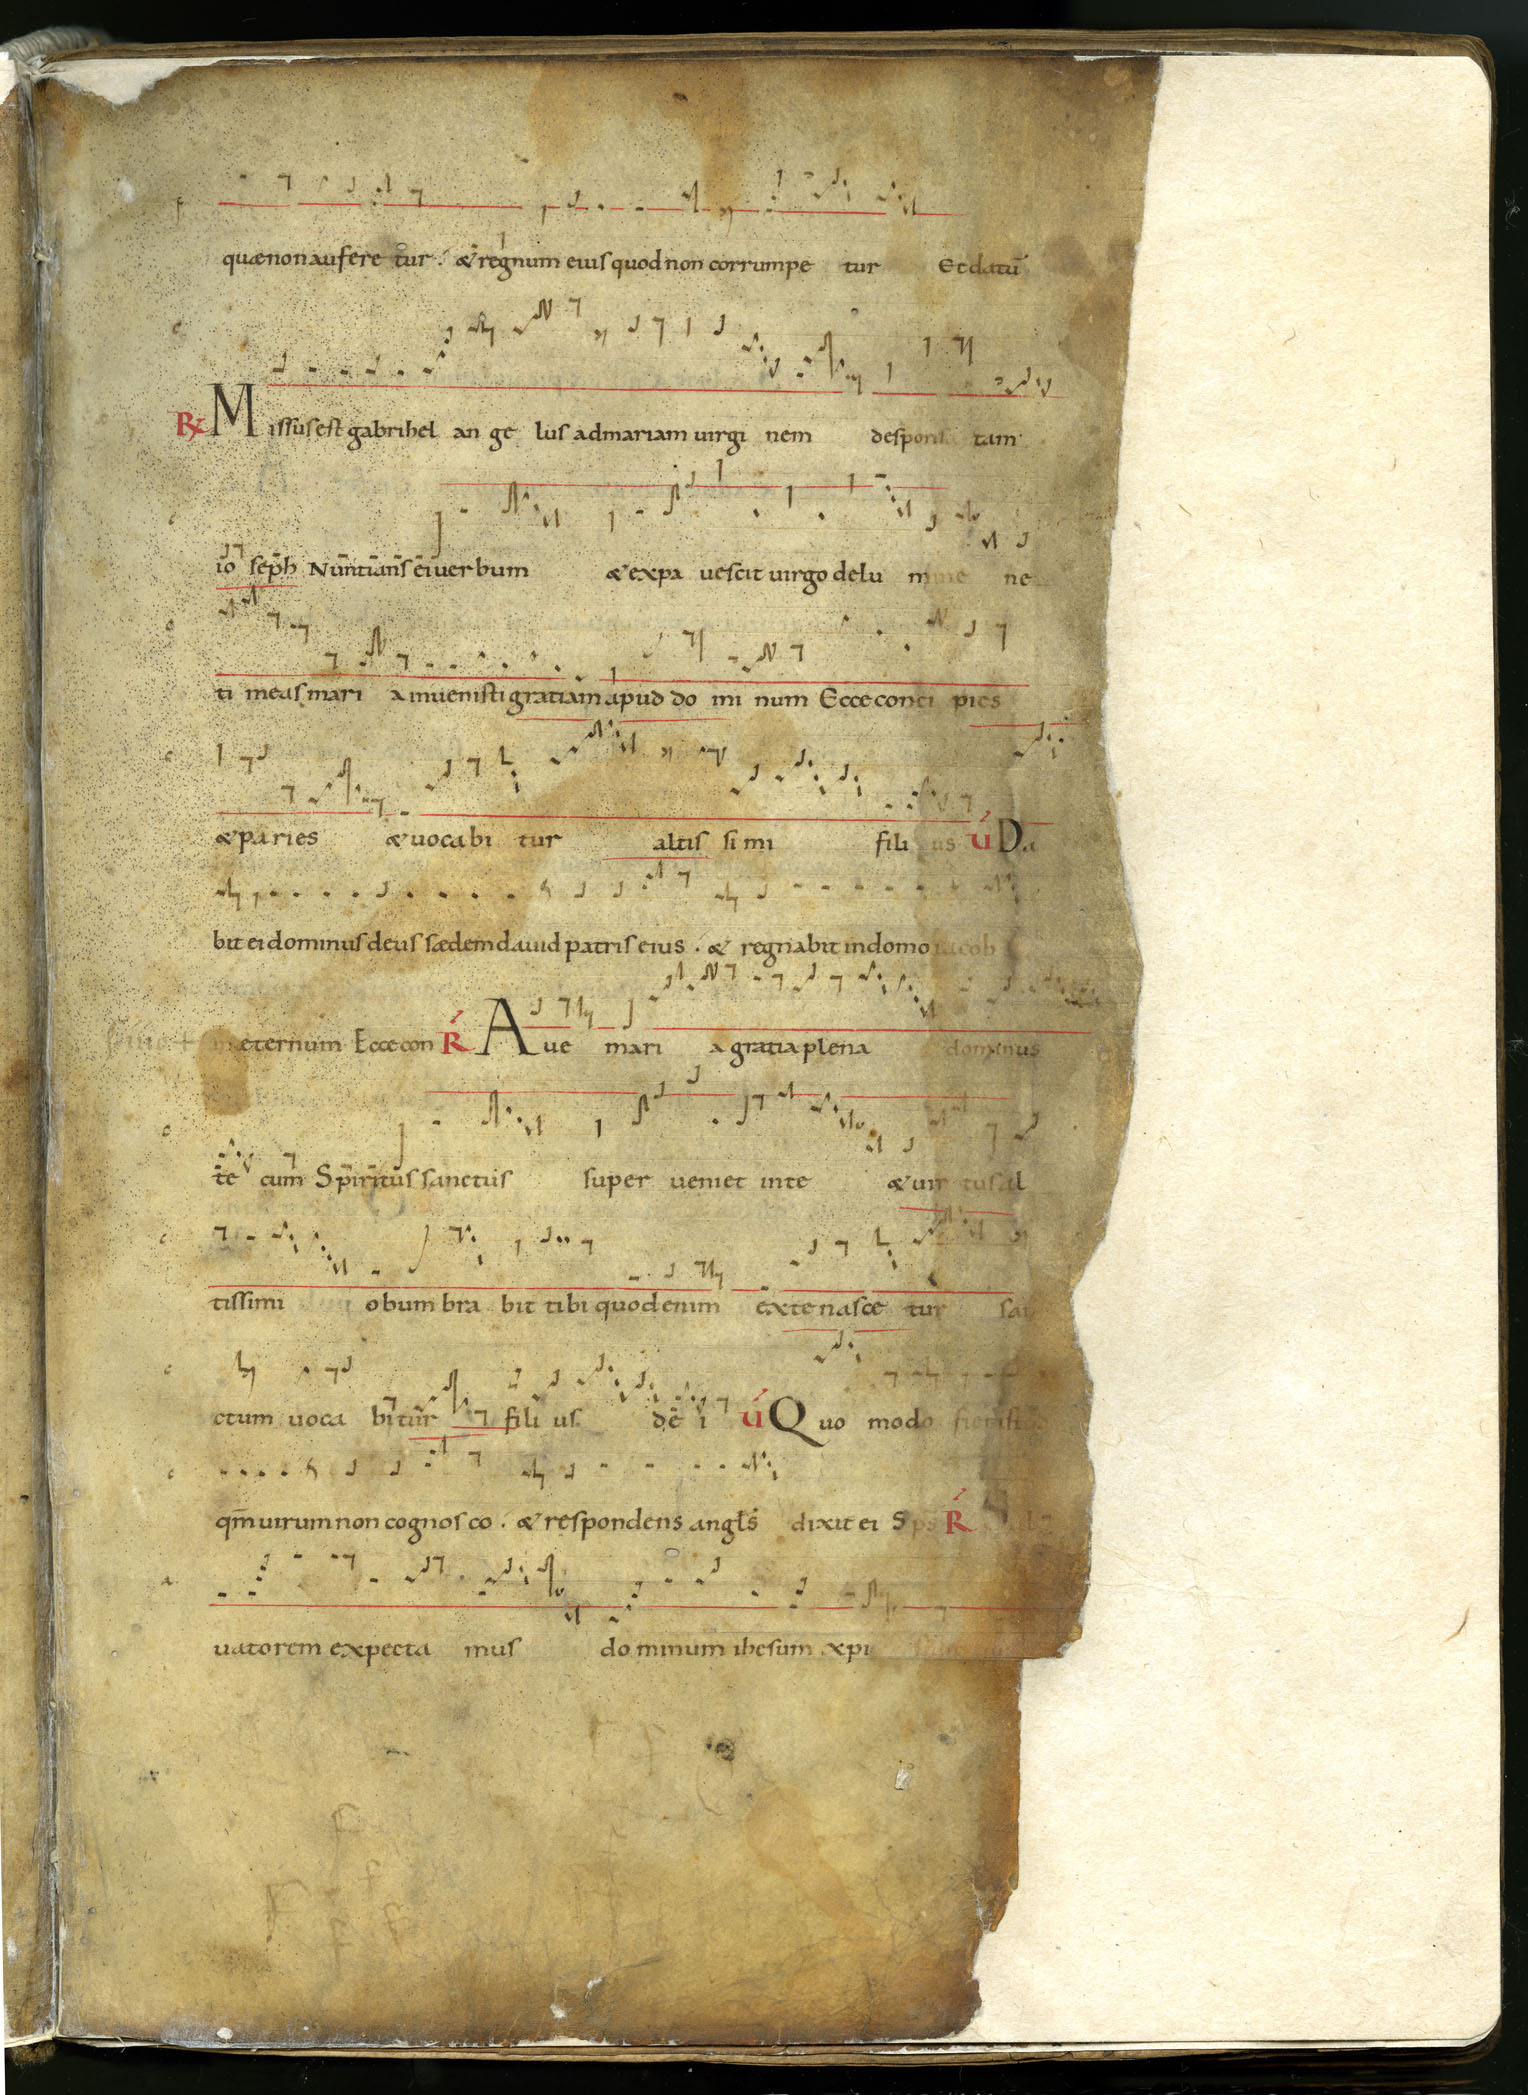 quæ non auferetur. & regnum eius quod non corrumpetur Et datū
℟ Missus est gabrihel angelus ad mariam uirginem desponsatam
ioseph Nuntians ei uerbum & expauescit uirgo de lumine ne
timeas maria inuenisti gratiam apud dominum Ecce concipies
& paries & uocabitur altissimi filius V́ Da
bit ei dominus deus sædem dauid patris eius. & regnabit in domo iacob
in æternum Ecce con Ŕ Aue maria gratia plena dominus
tecum Spiritus sanctus superueniet in te & uirtus al
tissimi obumbrabit tibi quod enim ex te nascetur san
ctum uocabitur filius dei V́ Quomodo fiet istud
qm̄ uirum non cognosco. & respondens angls dixit ei Sps Ŕ Sal
uatorem expectamus dominum ihesum xpi